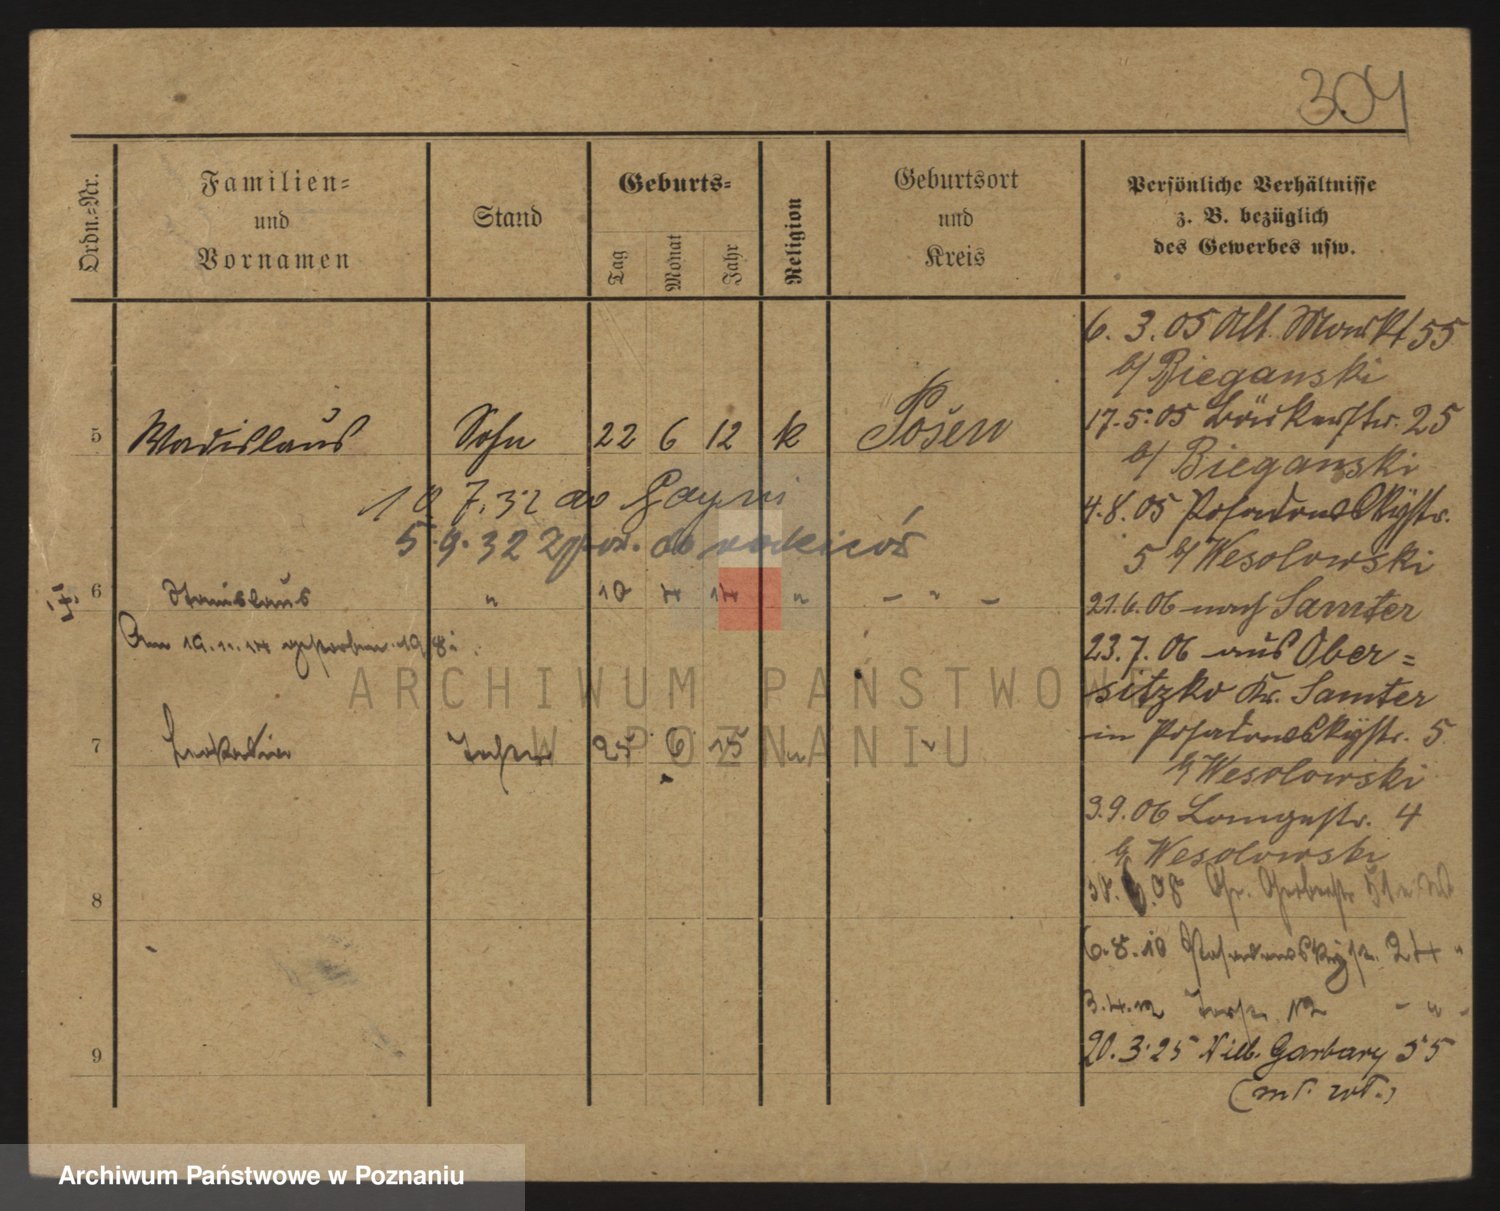 304
Ordn.=Nr.
Familien=
und
Vornamen
Stand
Geburts=
Tag
Monat
Jahr
Religion
Geburtsort
und
Kreis
Persönliche Verhältnisse
z. B. bezüglich
des Gewerbes usw.
6. 3. 05 Alt. Markt 55
b/ Bieganski
17. 5. 05 Bäckerstr. 25
b/ Bieganski
4. 8. 05 Posadowskystr.
5 b/ Wesolowski
21. 6. 06 nach Samter
23. 7. 06 aus Ober=
sitzko Kr. Samter
in Posadowskystr. 5
b/ Wesolowski
3. 9. 06 Langestr. 4
b/ Wesolowski
08 Gr. Gerberstr.
6. 8. 10 Posadowskystr. 24 "
3. 4. 12 12 - " -
20. 3. 25 Garbary 55
5 Wladislaus Sohn 22 6 12 k Posen
7. 32 do
5. 9. 32 od rodziców
6 Stanislaus " 10 4 14 " - " -
Am 19. 11. 14 gestorben.
7 Tochter 25 6 15 " "
8
9
ARCHIWUM PAŃSTWOWE
W POZNANIU
Archiwum Państwowe w Poznaniu